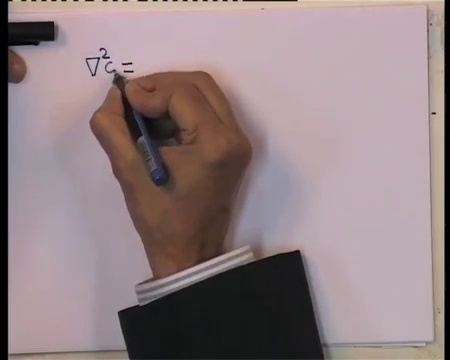 ∇²c =